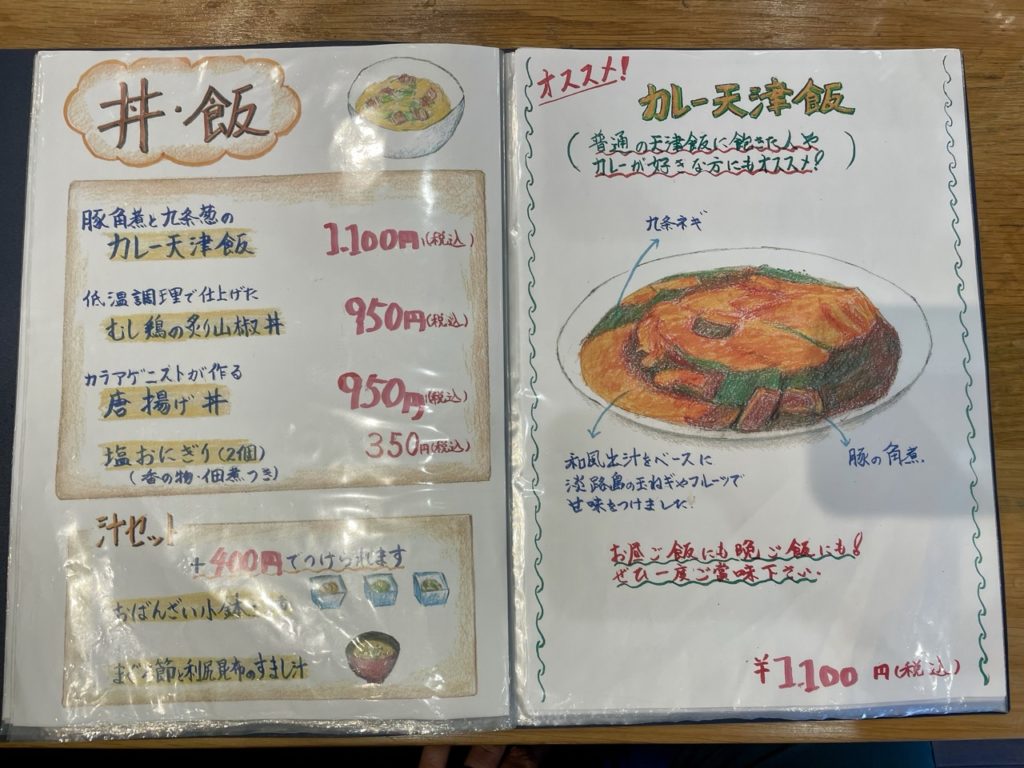 丼・飯
豚角煮と九条葱の
カレー天津飯 1.100円(税込)
低温調理で仕上げた
むし鶏の炙り山椒丼 950円(税込)
カラアゲニストが作る
唐揚げ丼 950円(税込)
塩おにぎり(2個) 350円(税込)
(香の物・佃煮つき)
汁セット
+400円でつけられます
おばんざい小鉢
まぐろ節と利尻昆布のすまし汁
オススメ!
カレー天津飯
(普通の天津飯に飽きた人や
カレーが好きな方にもオススメ!)
九条ネギ
和風出汁をベースに
淡路島の玉ねぎやフルーツで
甘味をつけました。
豚の角煮
お昼ご飯にも晩ご飯にも!
ぜひ一度ご賞味下さい。
¥1.100円(税込)